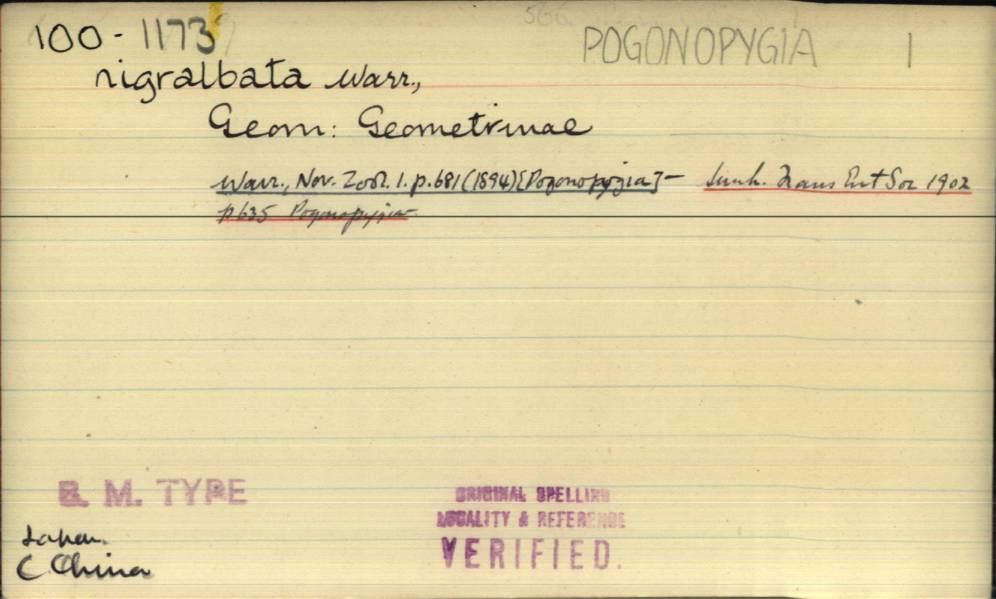 100-1173 POGONOPYGIA 1
nigralbata Warr.,
Geom: Geometrinae
Warr., Nov. Zool. 1. p.681 (1894) [Pogonopygia] - Swinh. Trans Ent Soc 1902
p 635 Pogonopygia
B. M. TYPE
ORIGINAL SPELLING
LOCALITY & REFERENCE
VERIFIED.
Japan.
C. China